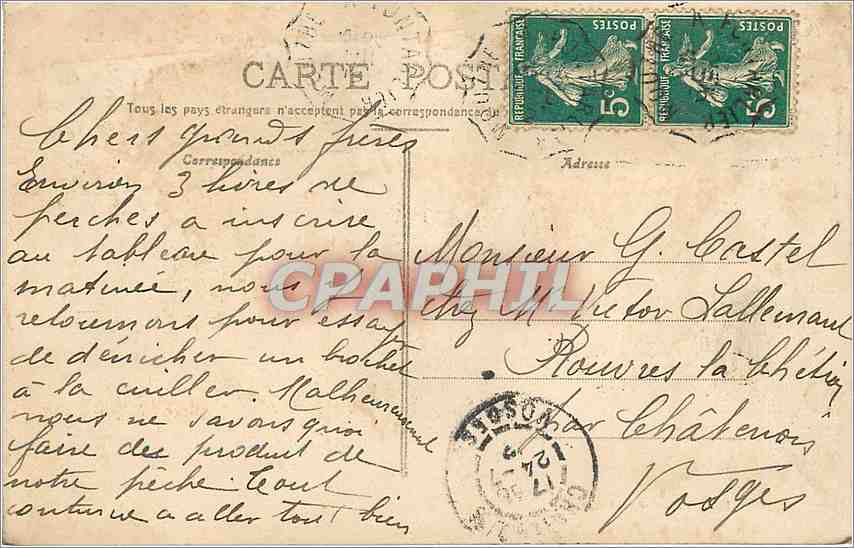 CARTE POSTALE
Tous les pays étrangers n'acceptent pas la correspondance au
Correspondance
Chers grands frères
Environ 3 livres de
perches a inscrire
au tableau pour la
matinée, nous y
retournons pour essayer
de dénicher un brochet
à la cuiller. Malheureusement
nous ne savons quoi
faire des produit de
notre pêche. Tout
continue a aller tout bien
Adresse
Monsieur G. Castel
chez Mr Victor Lallemand
Rouvres la Chétive
par Châtenois
Vosges
REPUBLIQUE FRANÇAISE
POSTES
5c
REPUBLIQUE FRANÇAISE
POSTES
5c
VOSGES
17
24
CPAPHIL